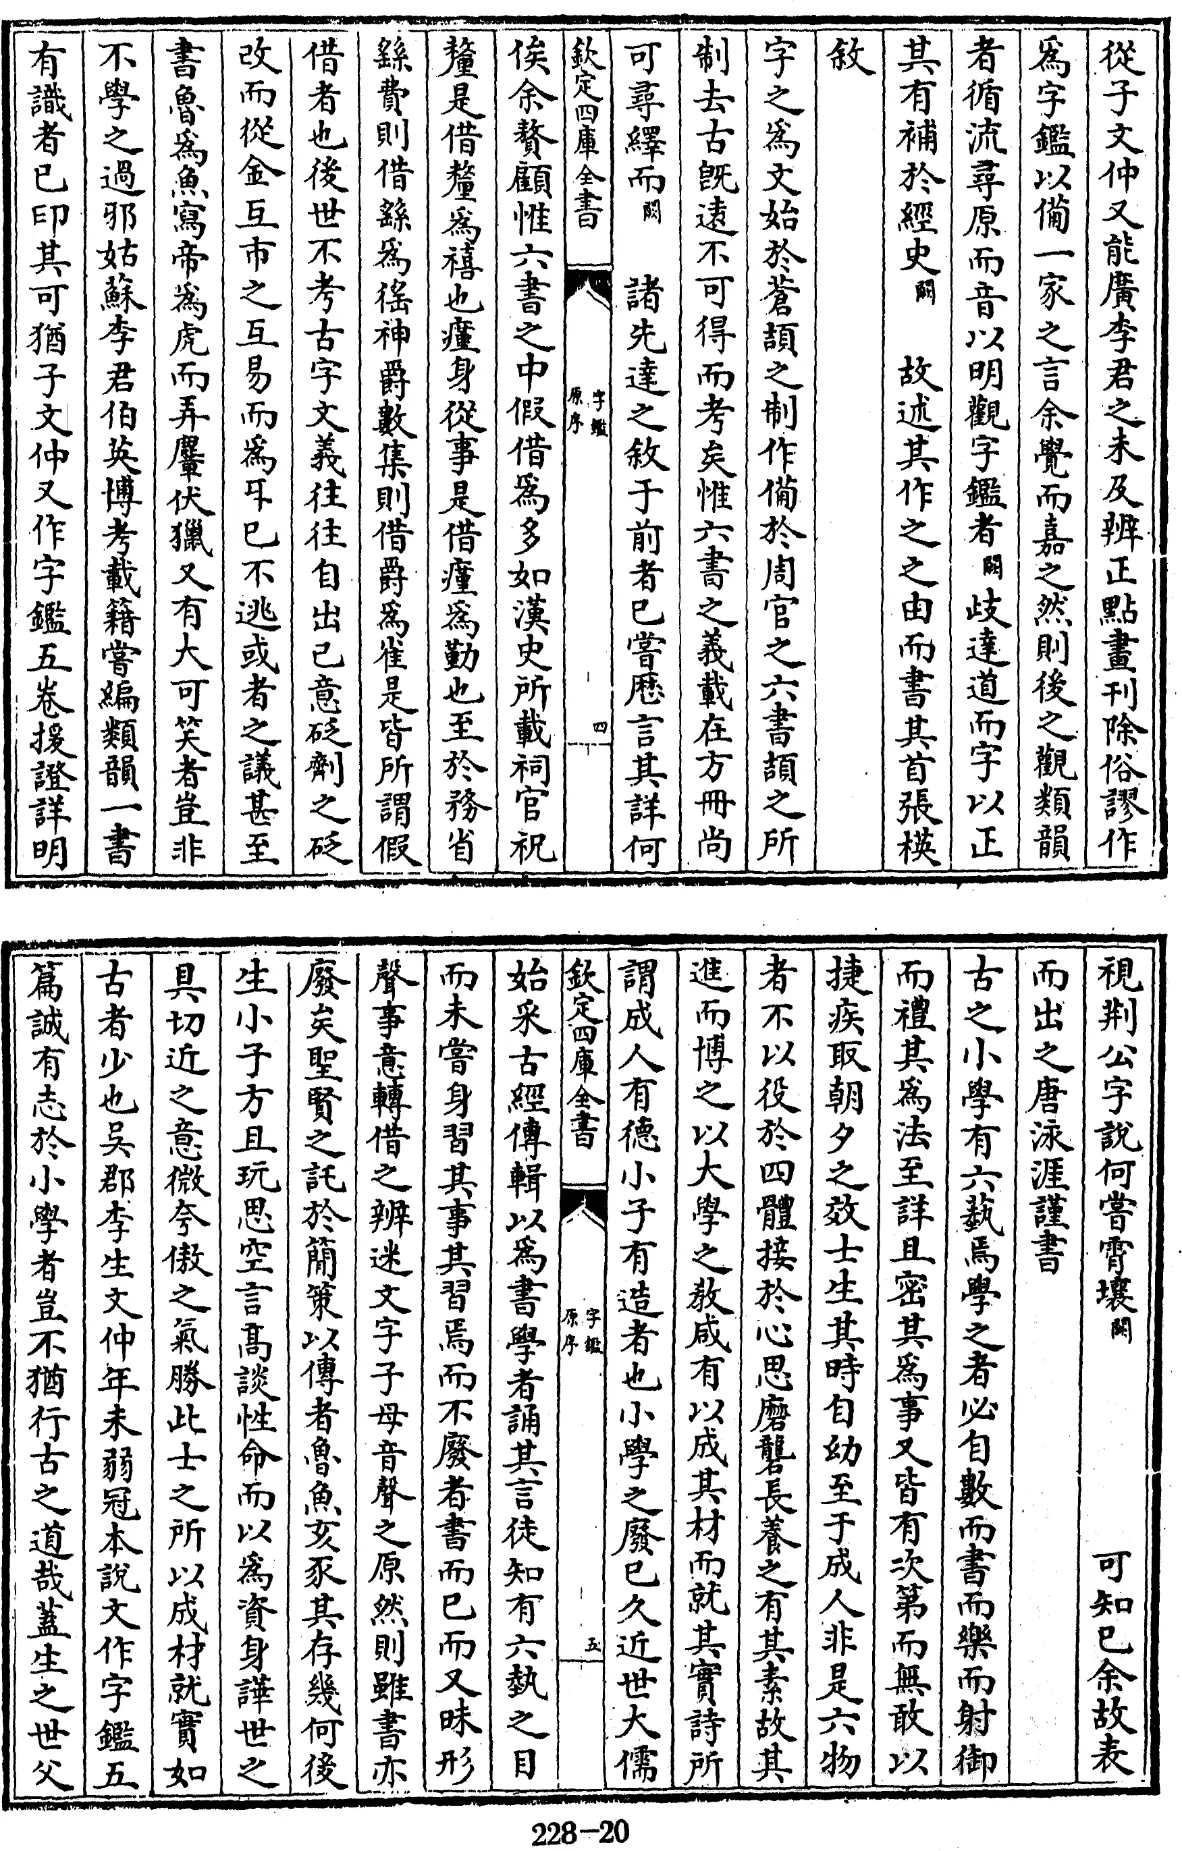 從子文仲又能廣李君之未及辨正點畫刊除俗謬作
爲字鑑以備一家之言余覺而嘉之然則後之觀類韻
者循流尋原而音以明觀字鑑者闕歧達道而字以正
其有補於經史闕 故述其作之之由而書其首張楧
敘
字之爲文始於蒼頡之制作備於周官之六書頡之所
制去古旣遠不可得而考矣惟六書之義載在方冊尚
可尋繹而闕 諸先達之敘于前者已嘗歷言其詳何
欽定四庫全書
字鑑
原序
四
俟余贅顧惟六書之中假借爲多如漢史所載祠官祝
釐是借釐爲禧也㢈身從事是借㢈爲勤也至於務省
繇費則借繇爲徭神爵數集則借爵爲雀是皆所謂假
借者也後世不考古字文義往往自出己意砭劑之砭
改而從金互市之互易而爲㸦已不逃或者之議甚至
書魯爲魚寫帝爲虎而弄麞伏獵又有大可笑者豈非
不學之過邪姑蘇李君伯英博考載籍嘗編類韻一書
有識者已印其可猶子文仲又作字鑑五卷援證詳明
視荆公字說何啻霄壤闕 可知已余故表
而出之唐泳涯謹書
古之小學有六藝焉學之者必自數而書而樂而射御
而禮其爲法至詳且密其爲事又皆有次第而無敢以
捷疾取朝夕之效士生其時自幼至于成人非是六物
者不以役於四體接於心思磨礱長養之有其素故其
進而博之以大學之教咸有以成其材而就其實詩所
謂成人有德小子有造者也小學之廢已久近世大儒
欽定四庫全書
字鑑
原序
五
始采古經傳輯以爲書學者誦其言徒知有六埶之目
而未嘗身習其事其習焉而不廢者書而已而又昧形
聲事意轉借之辨迷文字子母音聲之原然則雖書亦
廢矣聖賢之託於簡策以傳者魯魚亥豕其存幾何後
生小子方且玩思空言高談性命而以爲資身譁世之
具切近之意微夸傲之氣勝此士之所以成材就實如
古者少也吳郡李生文仲年未弱冠本說文作字鑑五
篇誠有志於小學者豈不猶行古之道哉蓋生之世父
228-20